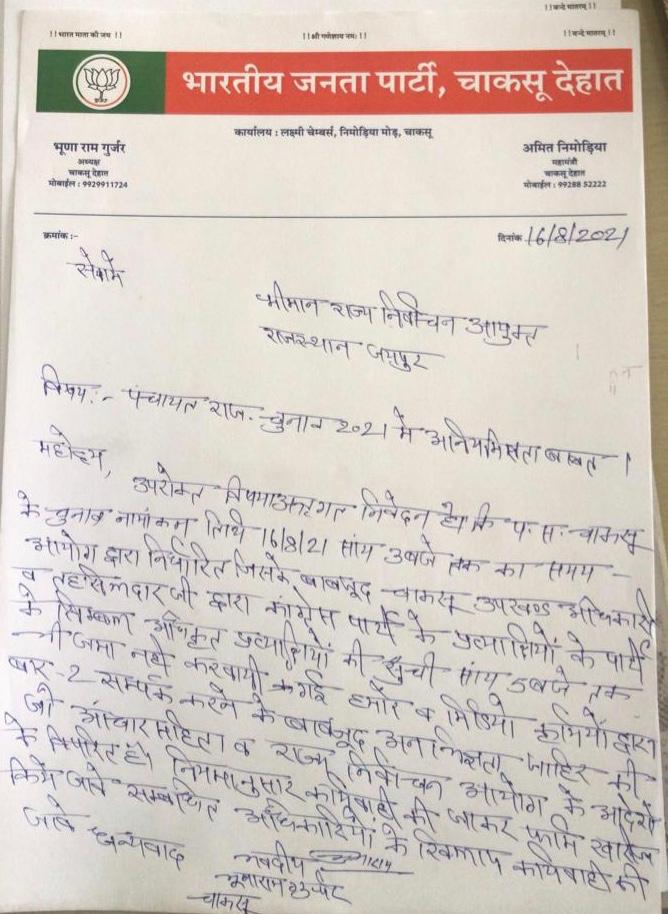 !! वन्दे मातरम् !!
!! भारत माता की जय !! !! श्री गणेशाय नमः !! !! वन्दे मातरम् !!
भारतीय जनता पार्टी, चाकसू देहात
कार्यालय : लक्ष्मी चेम्बर्स, निमोड़िया मोड़, चाकसू
भूणा राम गुर्जर
अध्यक्ष
चाकसू देहात
मोबाईल : 9929911724
अमित निमोड़िया
महामंत्री
चाकसू देहात
मोबाईल : 99288 52222
क्रमांक :- दिनांक 16/8/2021
सेवामे
श्रीमान राज्य निर्वाचन आयुक्त
राजस्थान जयपुर
विषय:- पंचायत राज. चुनाव 2021 मे अनियमिता बाबत ।
महोदय,
उपरोक्त विषयाअन्तर्गत निवेदन है कि प. स. चाकसू
के चुनाव नामांकन तिथि 16/8/21 सांय 3 बजे तक का समय -
आयोग द्वारा निर्धारित जिसके बावजूद चाकसू उपखण्ड अधिकारी
व तहसिलदार जी द्वारा कांग्रेस पार्टी के प्रत्याशियों के पार्टी
के सिम्बल अधिकृत प्रत्याशियों की सुची सांय 5 बजे तक
भी जमा नही करवायी गई और व मिडिया कर्मियों द्वारा
बार-2 सम्पर्क करने के बावजूद अनभिज्ञता जाहिर की
जो आचार संहिता व राज्य निर्वाचन आयोग के आदेशो
के विपरित है। नियमानुसार कार्यवाही की जाकर फार्म खारिज
किये जावे सम्बधित अधिकारियों के खिलाफ कार्यवाही की
जावे धन्यवाद
भवदीय
भूणाराम गुर्जर
चाकसू